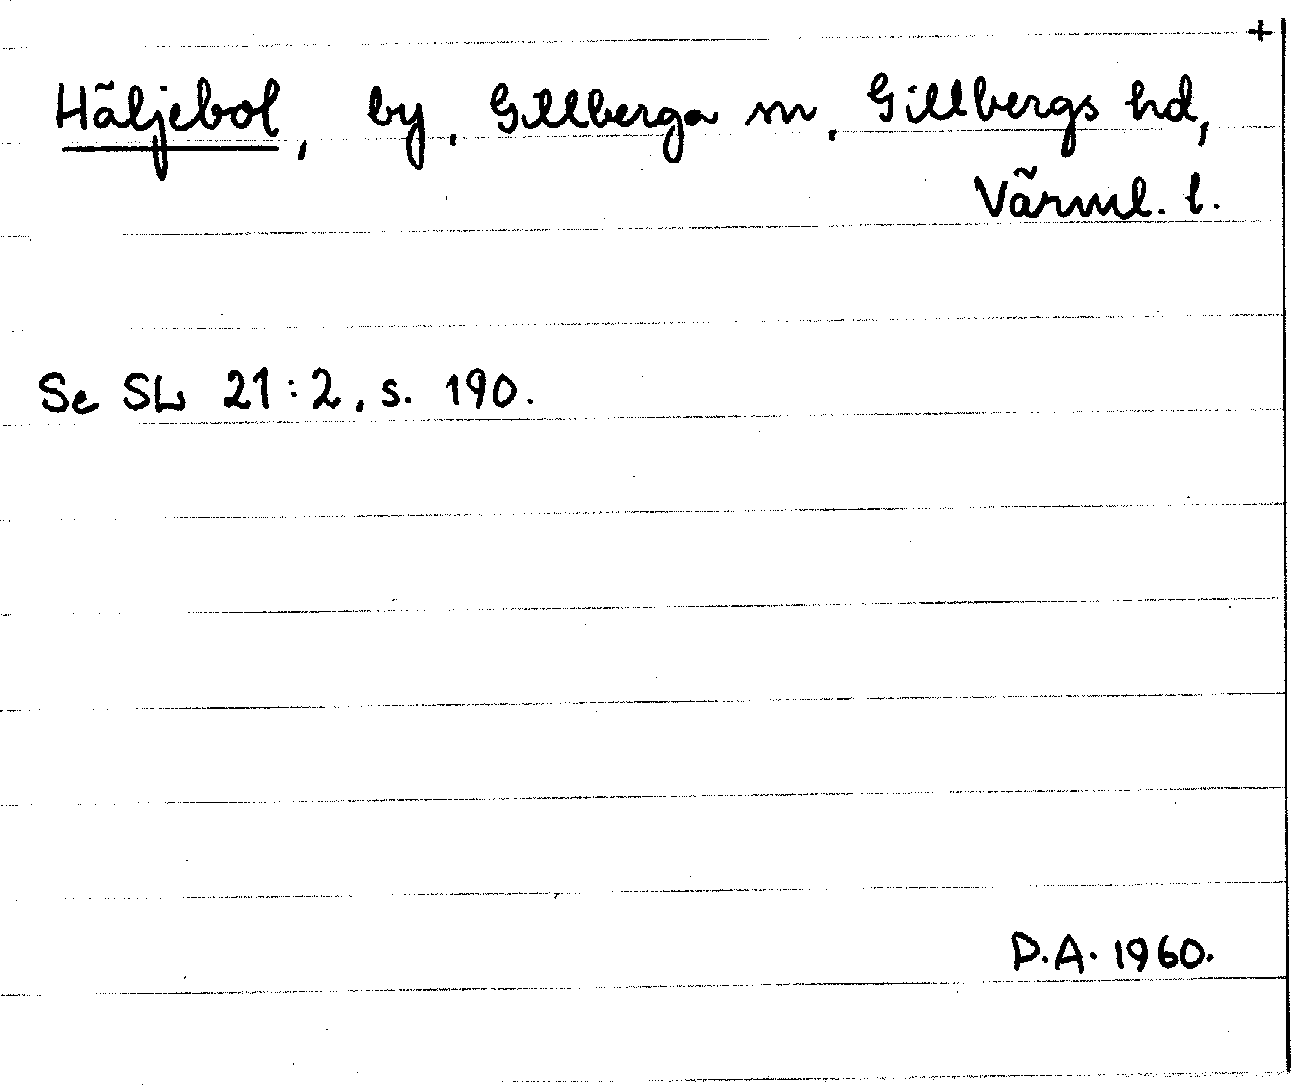 +
Häljebol, by, Gillberga sn, Gillbergs hd,
Värml. l.
Se SL 21:2, s. 190.
D.A. 1960.